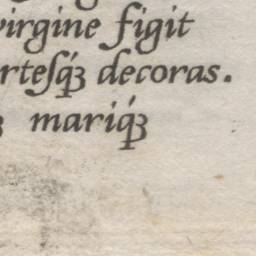 virgine figit
rteſq́ꝫ decoras.
ꝫ mariq́ꝫ